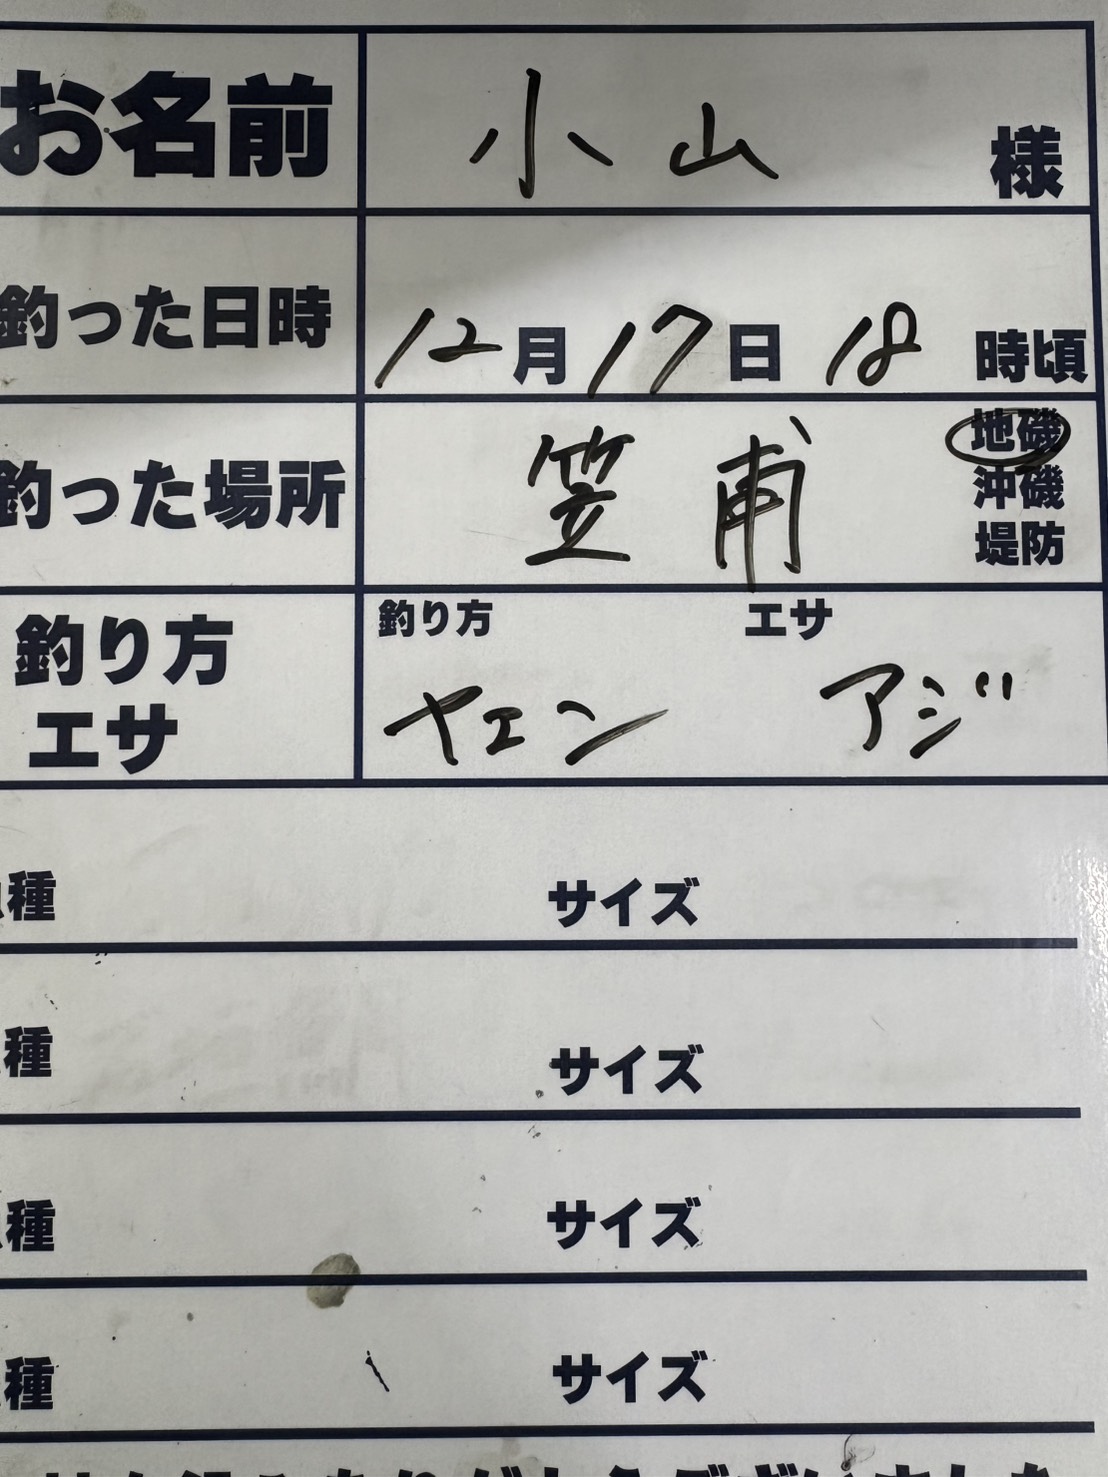 お名前 小山 様
釣った日時 12月17日 18時頃
釣った場所 笠甫 地磯
沖磯
堤防
釣り方 エサ
釣り方 ヤエン アジ
エサ
種 サイズ
種 サイズ
種 サイズ
種 サイズ